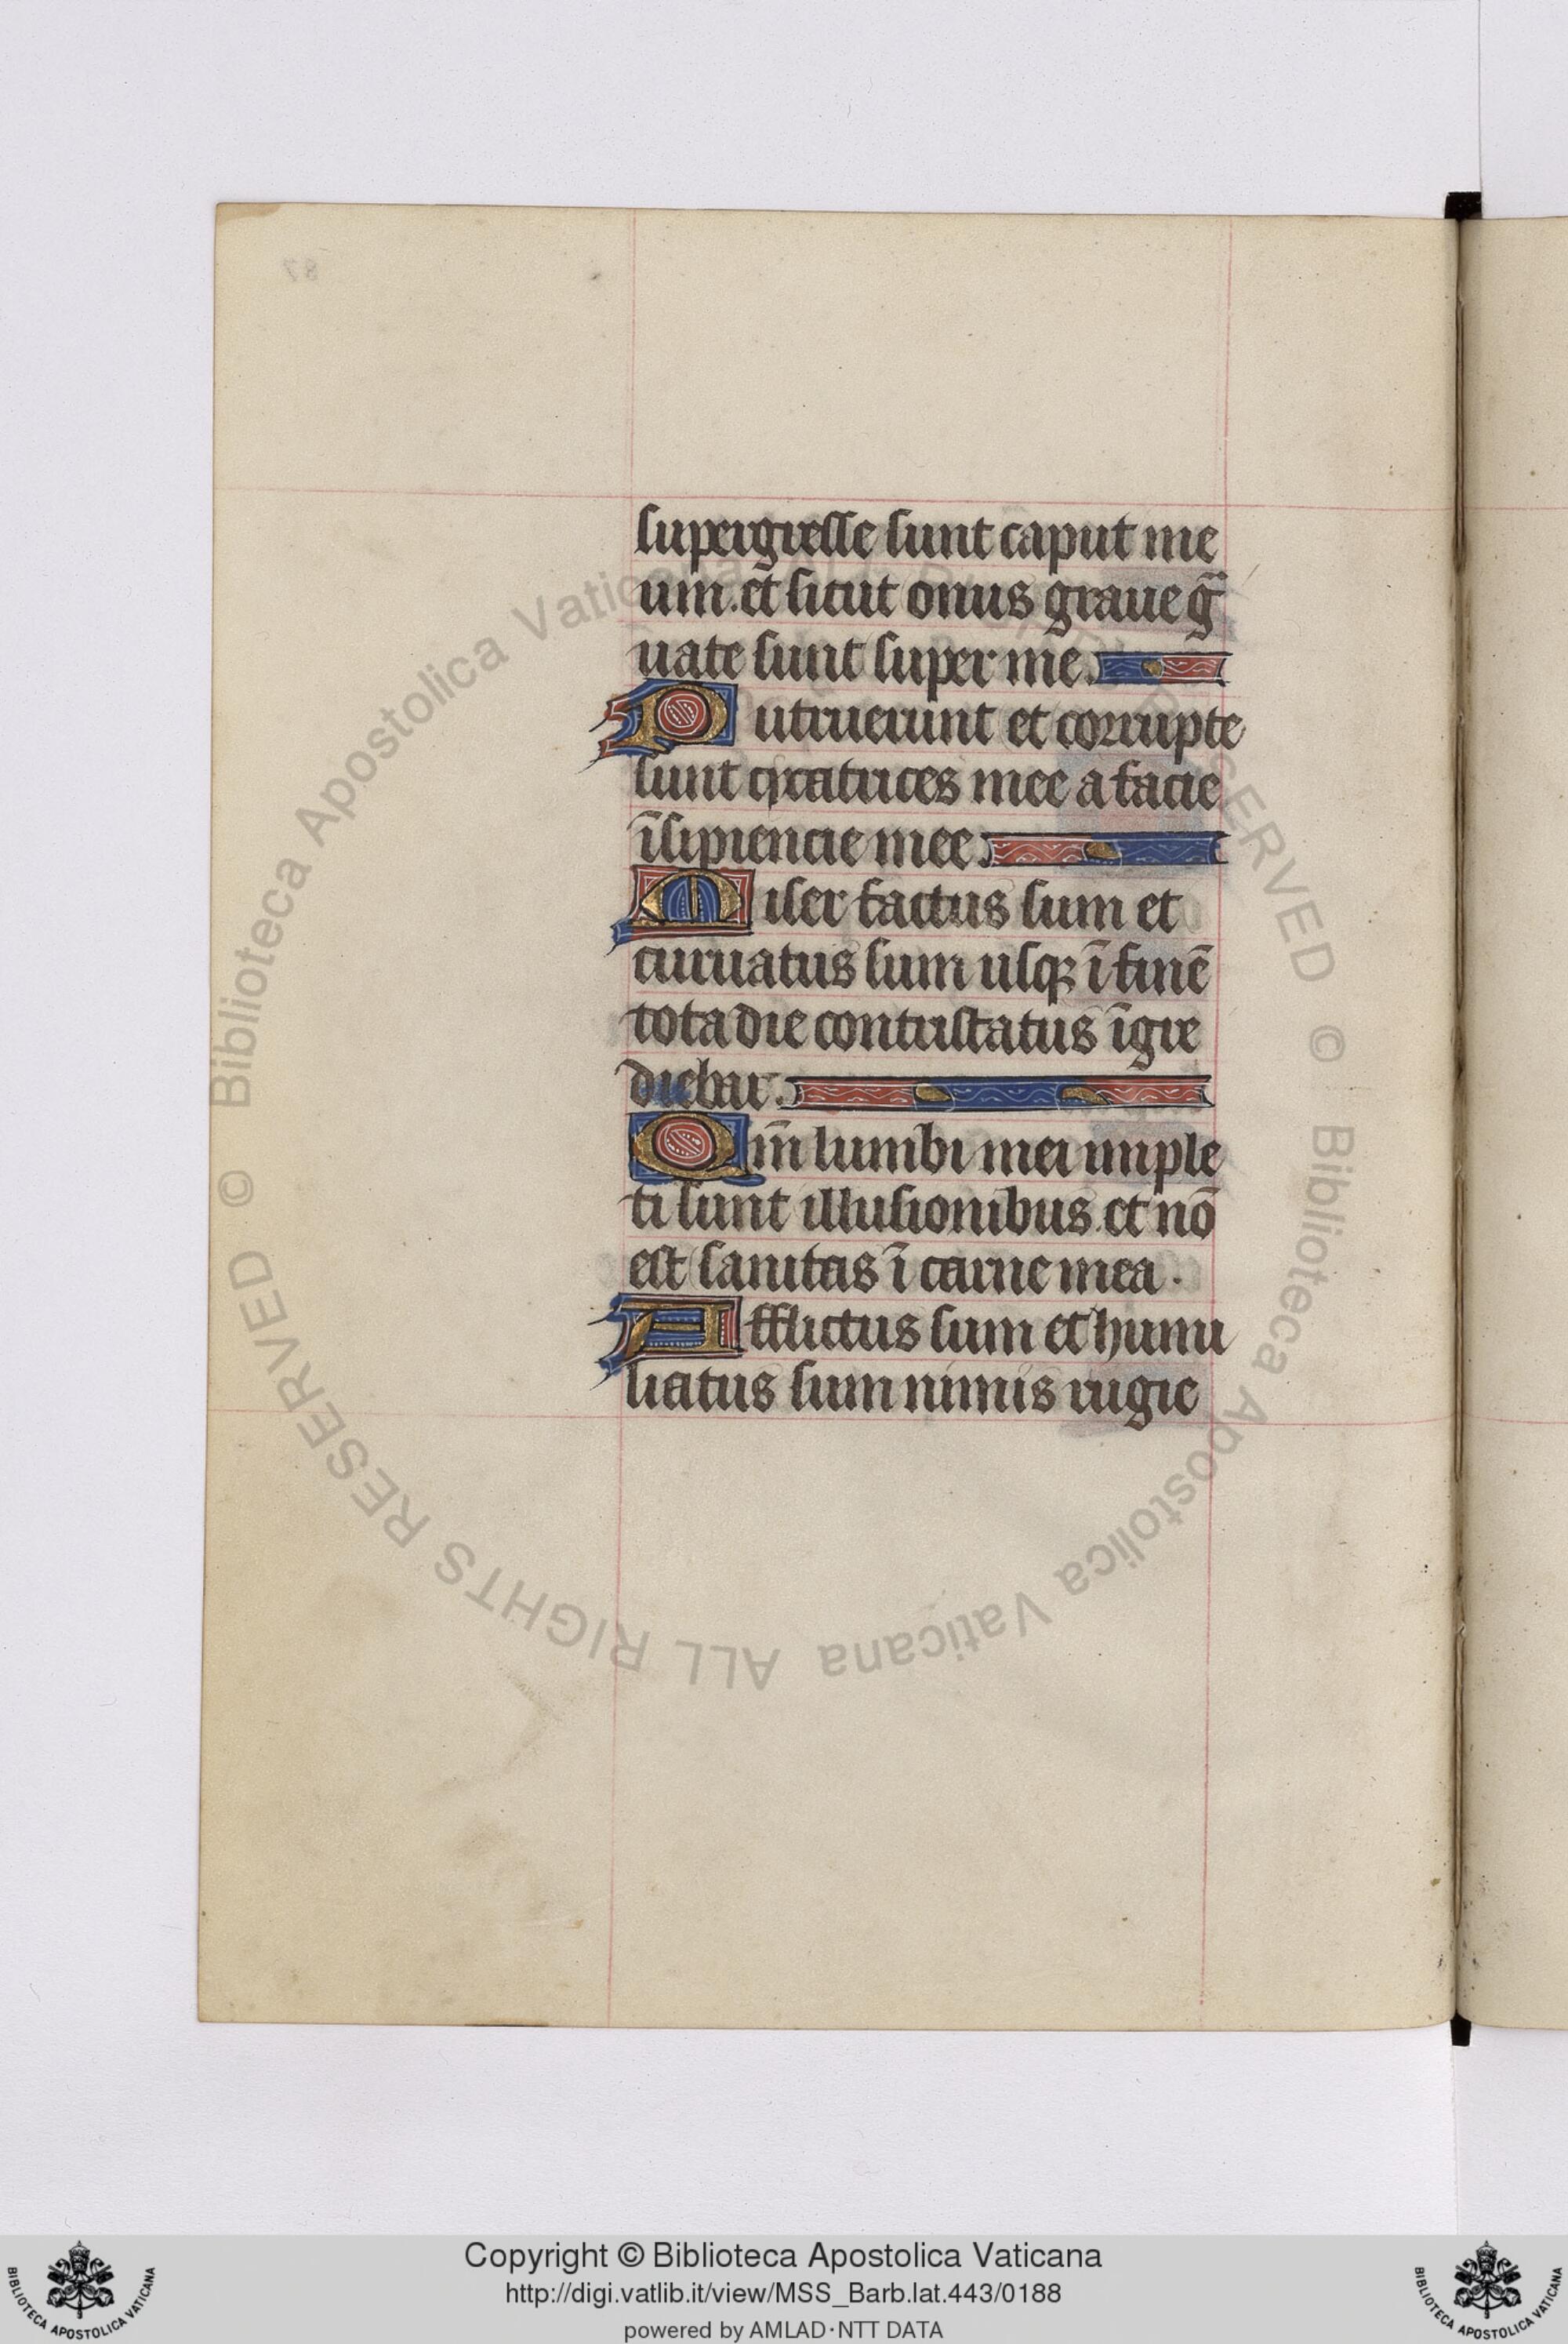 supergresse sunt caput me
um. et sicut onus graue gͣ
uate sunt super me.
Putruerunt et corrupte
sunt cycatrices mee a facie
īsipiencie mee.
Miser factus sum et
curuatus sum usqꝫ ī finē
tota die contristatus īgre
diebar.
Qm̄ lumbi mei imple
ti sunt illusionibus. et nō
est sanitas ī carne mea.
Afflictus sum et humi
liatus sum nimis rugie
Copyright © Biblioteca Apostolica Vaticana
http://digi.vatlib.it/view/MSS_Barb.lat.443/0188
powered by AMLAD·NTT DATA
BIBLIOTECA APOSTOLICA VATICANA
BIBLIOTECA APOSTOLICA VATICANA
© Biblioteca Apostolica Vaticana ALL RIGHTS RESERVED © Biblioteca Apostolica Vaticana ALL RIGHTS RESERVED